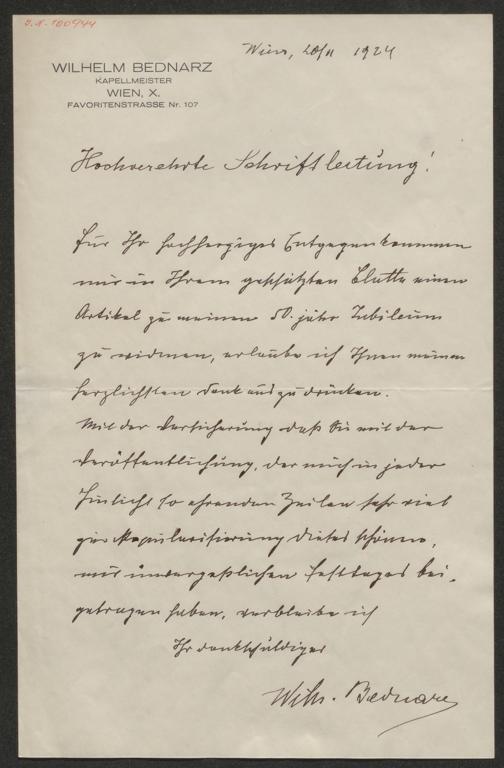 J.N. 180944
Wien, 20/11 1924
WILHELM BEDNARZ
KAPELLMEISTER
WIEN, X.
FAVORITENSTRASSE Nr. 107
Hochverehrte Schriftleitung!
Für Ihr hochherziges Entgegenkommen
mir in Ihrem geschätzten Blatte einen
Artikel zu meinem 50. jähr Jubileum
zu widmen, erlaube ich Ihnen meinen
herzlichsten Dank auszudrücken.
Mit der Versicherung daß Sie mit der
Veröffentlichung, der mich in jeder
Hinsicht so ehrenden Zeilen sehr viel
zur Popularisierung dieses schönen,
mir unvergeßlichen Festtages bei-
getragen haben, verbleibe ich
Ihr dankschuldiger
Wilh. Bednarz